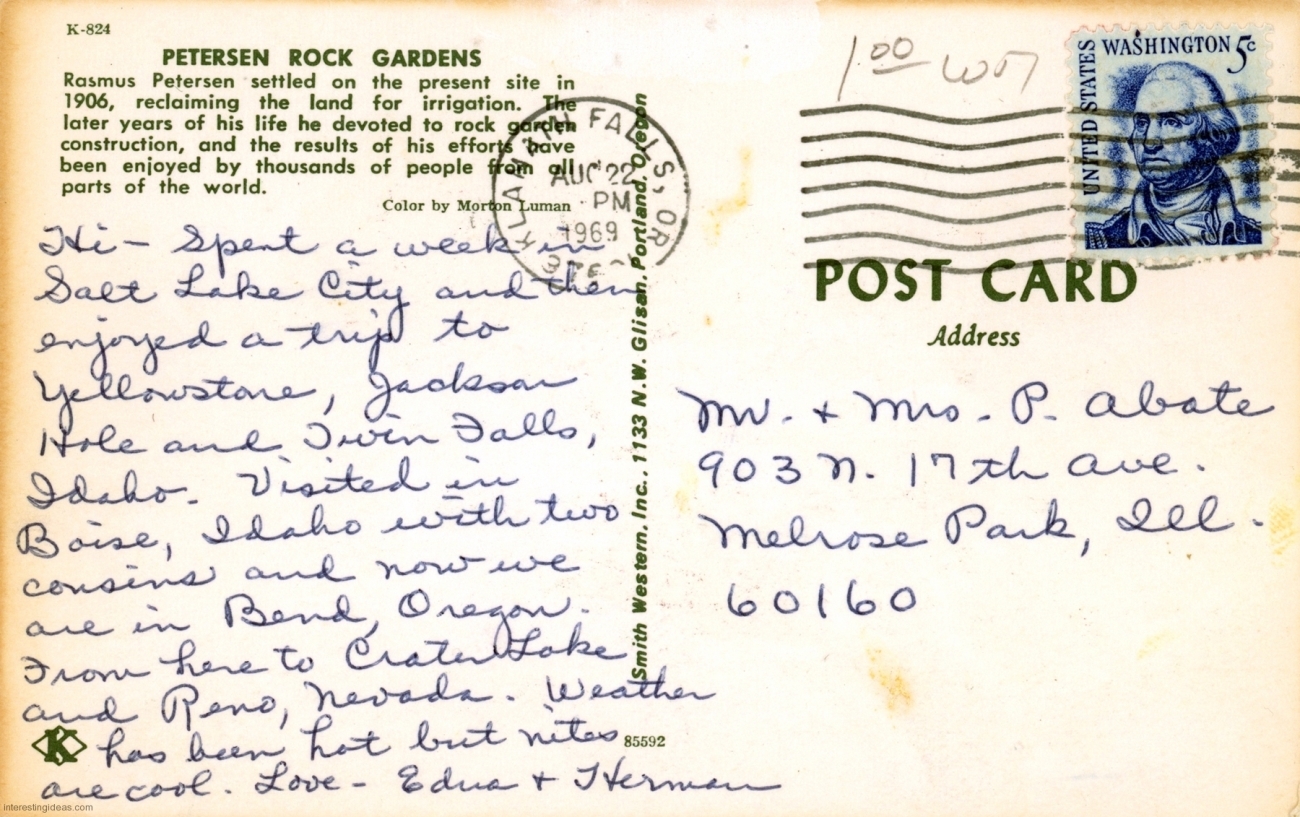 K-824
PETERSEN ROCK GARDENS
Rasmus Petersen settled on the present site in
1906, reclaiming the land for irrigation. The
later years of his life he devoted to rock garden
construction, and the results of his efforts have
been enjoyed by thousands of people from all
parts of the world.
Color by Morton Luman
Hi - Spent a week in
Salt Lake City and then
enjoyed a trip to
Yellowstone, Jackson
Hole and Twin Falls,
Idaho. Visited in
Boise, Idaho with two
cousins and now we
are in Bend, Oregon.
From here to Crater Lake
and Reno, Nevada. Weather
has been hot but nites
are cool. Love - Edna + Herman
K
85592
Smith Western, Inc., 1133 N.W. Glisan, Portland, Oregon
KLAMATH FALLS, OR
AUG 22
PM
1969
1.00
UNITED STATES
WASHINGTON 5c
POST CARD
Address
Mr. + Mrs. P. Abate
903 N. 17th Ave.
Melrose Park, Ill.
60160
interestingideas.com